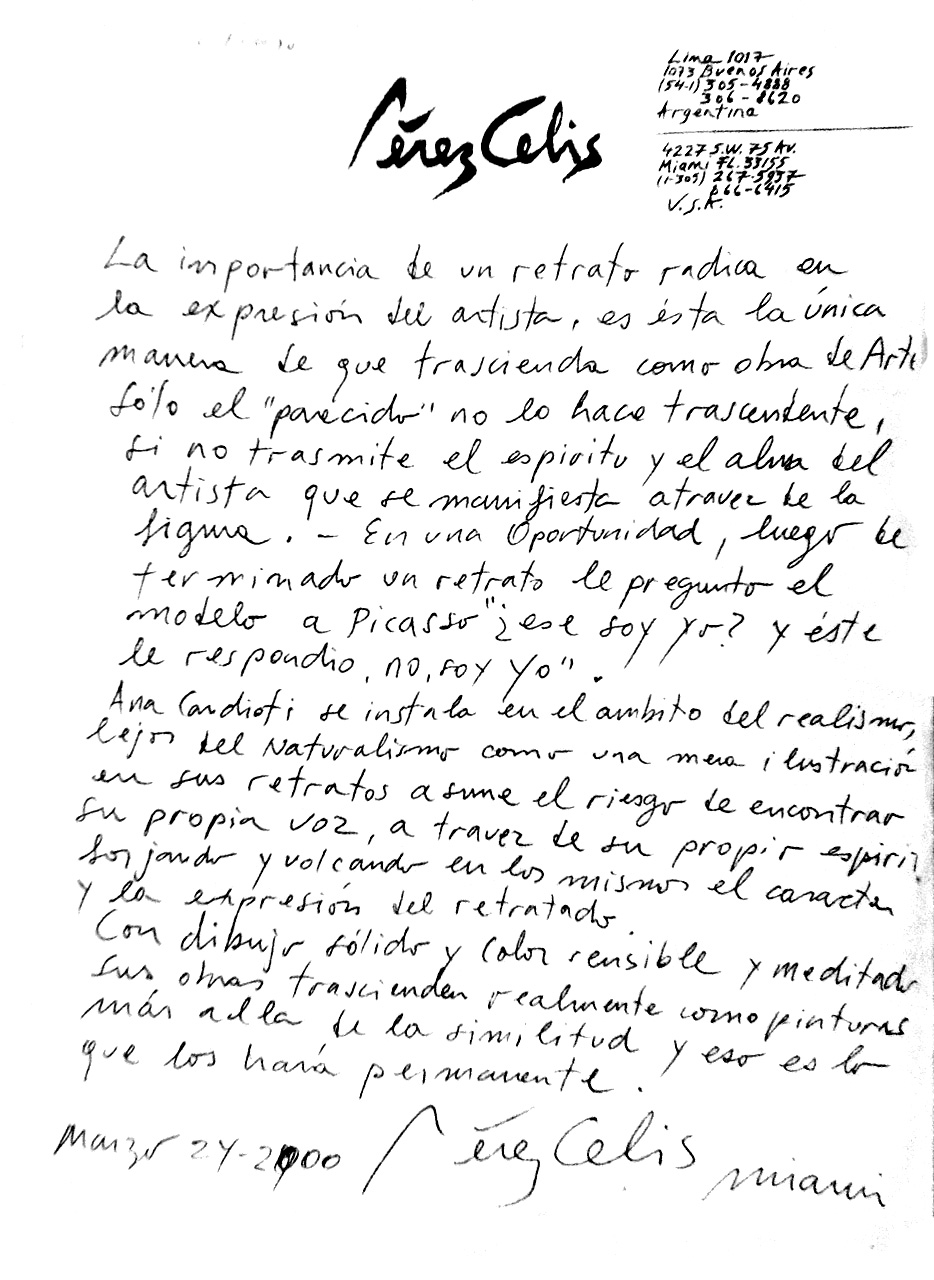 Pérez Celis
Lima 1017
1073 Buenos Aires
(54-1) 305-4888
306-8620
Argentina
4227 S.W. 75 Av.
Miami FL. 33155
(1-305) 267-5937
666-6415
U.S.A.
La importancia de un retrato radica en
la expresión del artista, es ésta la única
manera de que trascienda como obra de Arte
sólo el "parecido" no lo hace trascendente,
si no trasmite el espiritu y el alma del
artista que se manifiesta atravez de la
figura. - En una Oportunidad, luego de
terminado un retrato le pregunto el
modelo a Picasso "¿ese soy yo? y éste
le respondio, no, soy yo".
Ana Candioti se instala en el ambito del realismo,
lejos del Naturalismo como una mera ilustración
en sus retratos asume el riesgo de encontrar
su propia voz, a travez de su propio espirit
forjando y volcando en los mismos el caracter
y la expresión del retratado.
Con dibujo sólido y color sensible y meditado
sus obras trascienden realmente como pinturas
más alla de la similitud y eso es lo
que los hará permanente.
Marzo 24-2000 Pérez Celis Miami